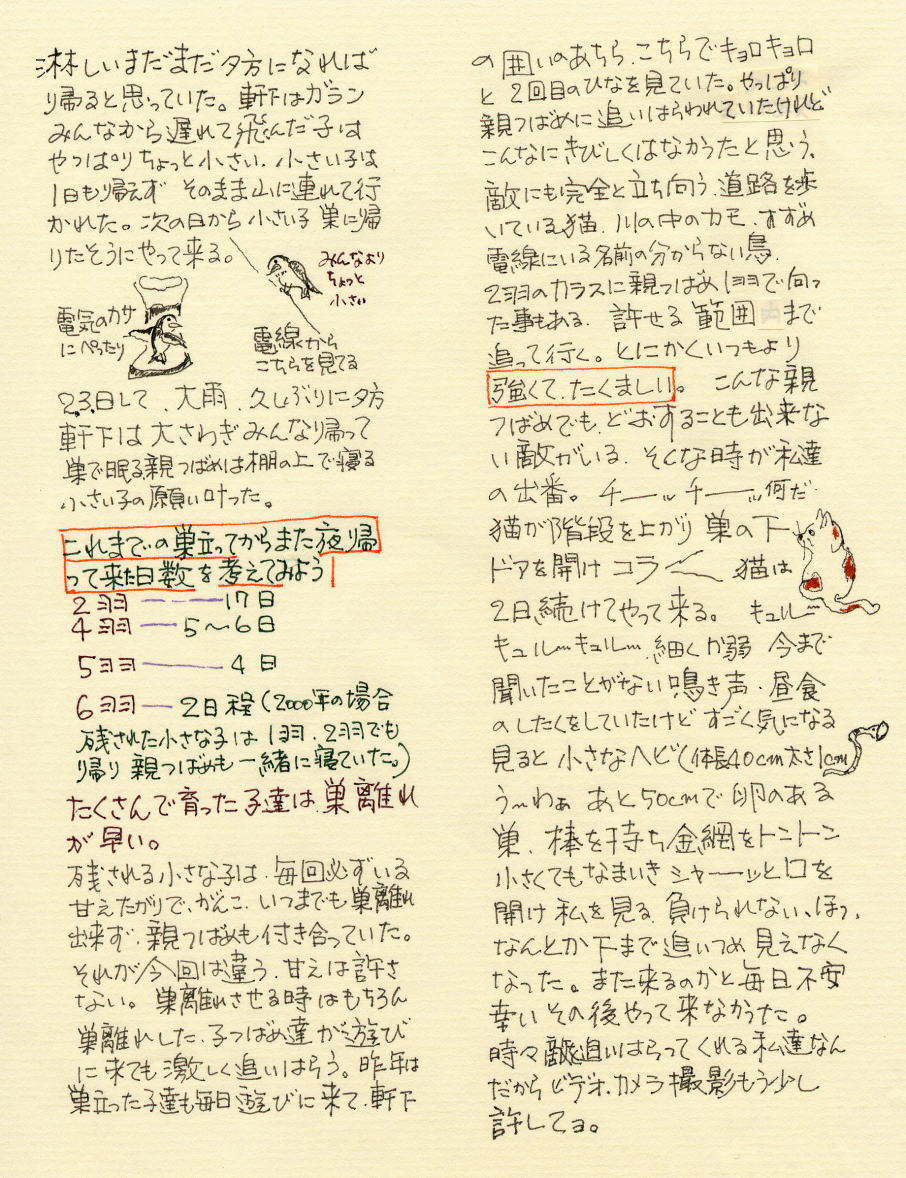 淋しいまだまだ夕方になれば
り帰ると思っていた。軒下はガラン
みんなから遅れて飛んだ子は
やっぱりちょっと小さい、小さい子は
1日もり帰えず そのまま山に連れて行
かれた。次の日から 小さい子 巣に帰
りたそうにやって来る。
みんなより
ちょっと
小さい
電気のカサ
にぺったり
電線から
こちらを見てる
2.3日して、大雨、久しぶりに夕方
軒下は大さわぎみんなり帰って
巣で眠る親つばめは棚の上で寝る
小さい子の願い叶った。
これまでの巣立ってからまた夜り帰
って来た日数を考えてみよう
2羽 ーーー 17日
4羽 ー 5〜6日
5羽 ーーー 4日
6羽 ー 2日程(2000年の場合
残された小さな子は1羽、2羽でも
り帰り 親つばめも一緒に寝ていた。)
たくさんで育った子達は、巣離れ
が早い。
残される小さな子は、毎回必ずいる
甘えたがりで、がんこ、いつまでも巣離れ
出来ず、親つばめも付き合っていた。
それが今回は違う、甘えは許さ
ない。巣離れさせる時はもちろん
巣離れした、子つばめ達が遊び
に来ても激しく追いはらう。昨年は
巣立った子達も毎日遊びに来て、軒下
の囲いのあちら、こちらでキョロキョロ
と 2回目のひなを見ていた。やっぱり
親つばめに追いはらわれていたけれど
こんなにきびしくはなかったと思う。
敵にも完全と立ち向う、道路を歩
いている猫、川の中のカモ、すずめ
電線にいる名前の分からない鳥、
2羽のカラスに親つばめ1羽で向っ
た事もある、許せる範囲まで
追って行く。とにかくいつもより
強くて、たくましい。 こんな親
つばめでも、どおすることも出来な
い敵がいる、そんな時が私達
の出番。チーッチーッ何だ
猫が階段を上がり 巣の下
ドアを開け コラ〜 猫は
2日続けてやって来る。 キュル〜
キュル〜キュル〜、細くか弱 今まで
聞いたことがない鳴き声、昼食
のしたくをしていたけど すごく気になる
見ると 小さなヘビ(体長40cm太さ1cm)
う〜わぁ あと50cmで卵のある
巣、棒を持ち金網をトントン
小さくてもなまいき シャーーッと口を
開け 私を見る、負けられない、ほっ、
なんとか下まで追いつめ 見えなく
なった。また来るのかと毎日不安
幸い その後やって来なかった。
時々敵追いはらってくれる私達なん
だから ビデオ、カメラ撮影もう少し
許してヨ。